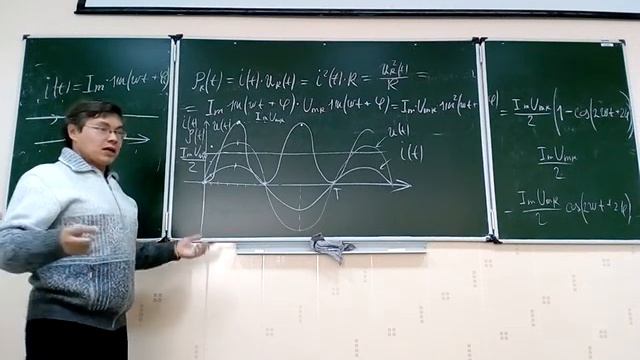 i(t) = Iₘ · sin(ωt + φ)
p_R(t) = i(t) · u_R(t) = i²(t) · R = u_R²(t)/R =
= Iₘ · sin(ωt + φ) · U_mR sin(ωt + φ) = Iₘ U_mR sin²(ωt + φ)
i(t)
p(t)
u(t)
Iₘ U_mR
Iₘ U_mR / 2
u(t)
i(t)
T
= Iₘ U_mR / 2 (1 - cos(2ωt + 2φ)
Iₘ U_mR / 2
- Iₘ U_mR / 2 cos(2ωt + 2φ)